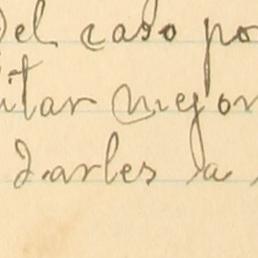 del caso po
itar mejor
darles la